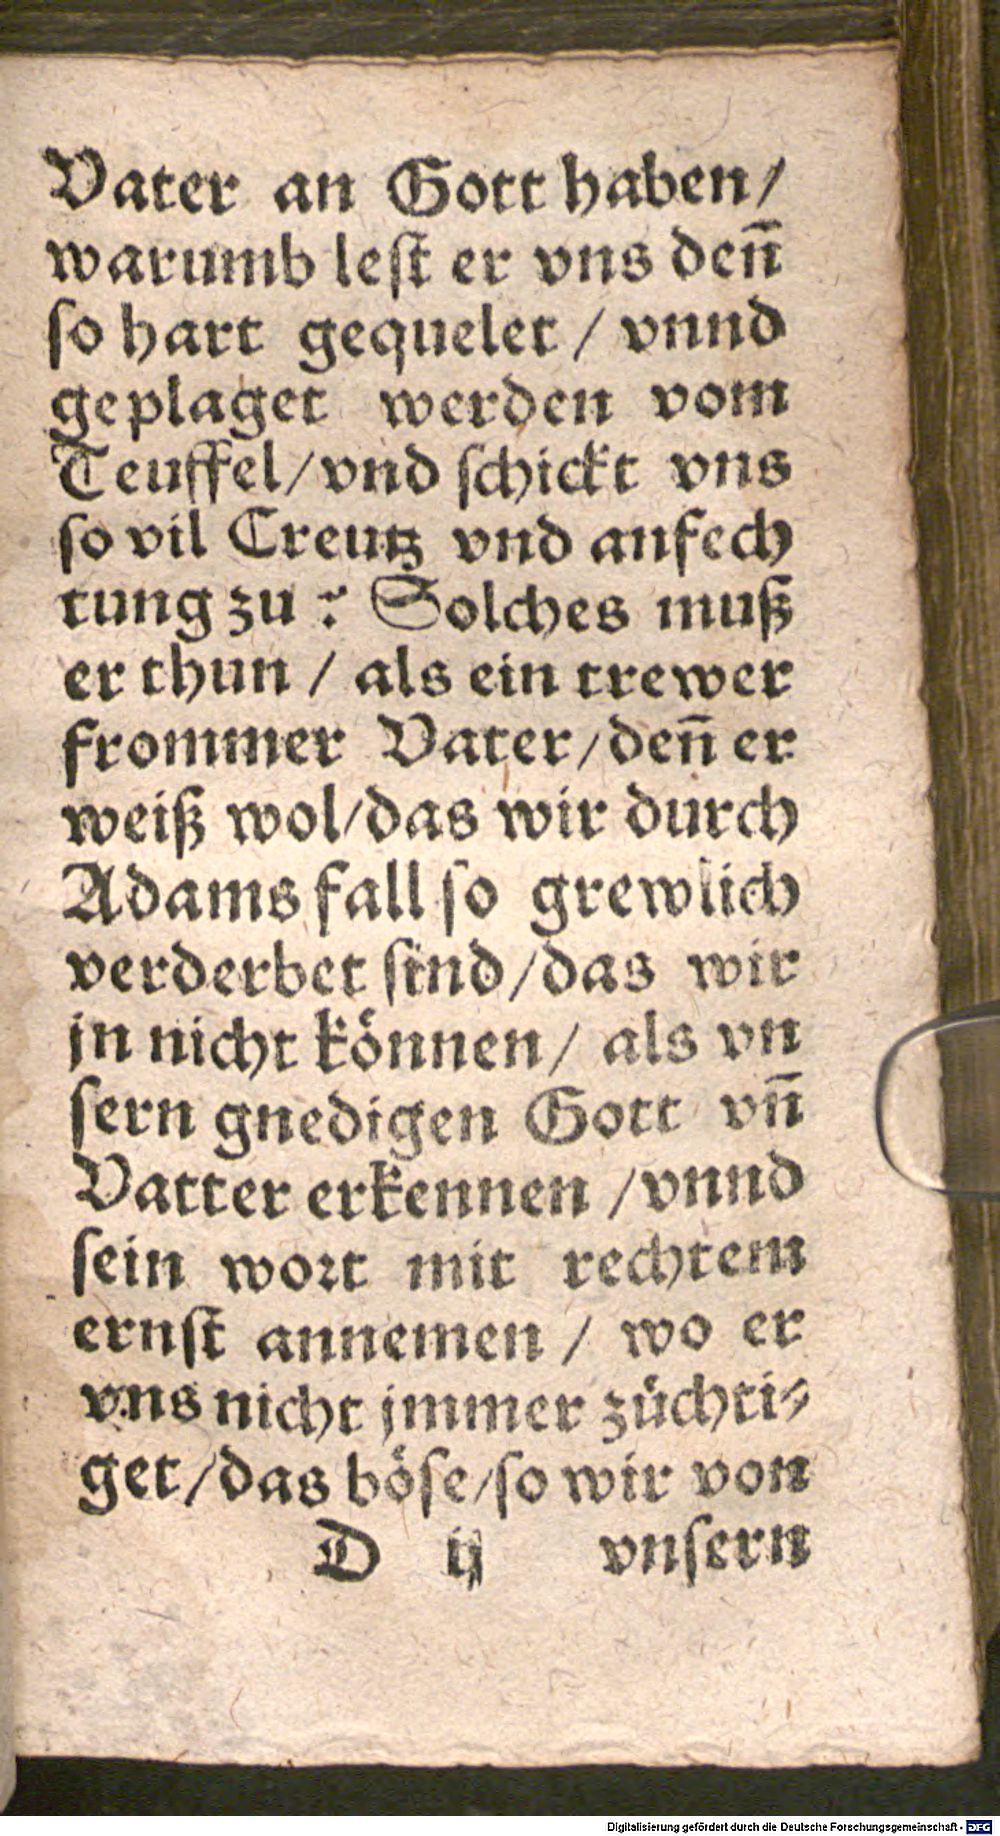 Vater an Gott haben/
warumb leſt er vns deñ
ſo hart gequelet / vnnd
geplaget werden vom
Teuffel/vnd ſchickt vns
ſo vil Creutz vnd anfech
tung zu ? Solches muß
er thun / als ein trewer
frommer Vater/deñ er
weiß wol/das wir durch
Adams fall ſo grewlich
verderbet ſind/das wir
jn nicht koͤnnen/ als vn
ſern gnedigen Gott vñ
Vatter erkennen /vnnd
ſein woꝛt mit rechtem
ernſt annemen / wo er
vns nicht jmmer zuͤchti⸗
get/das boͤſe/ſo wir von
D ij vnſern
Digitalisierung gefördert durch die Deutsche Forschungsgemeinschaft - DFG